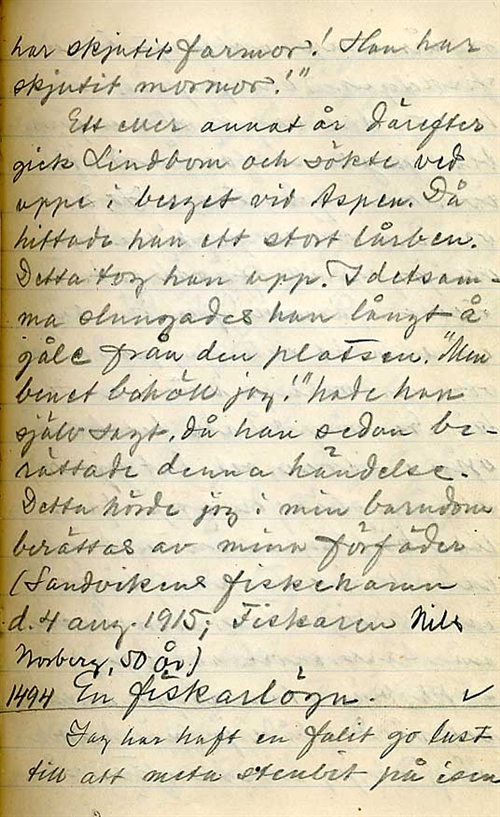 har skjutit farmor! Han har
skjutit mormor!"
Ett eller annat år därefter
gick Lindbom och sökte ved
uppe i berget vid Aspen. Då
hittade han ett stort lårben.
Detta tog han upp. I detsam-
ma slungades han långt å
gåle från den platsen. "Men
benet behöll jag!" hade han
själv sagt, då han sedan be-
rättade denna händelse.
Detta hörde jag i min barndom
berättas av mina förfäder
(Sandvikens fiskehamn
d. 4 aug. 1915; Fiskaren Nils
Norberg, 50 år)
1494 En fiskarlögn. ✓
Jag har haft en falit go lust
till att meta stenbit på isen